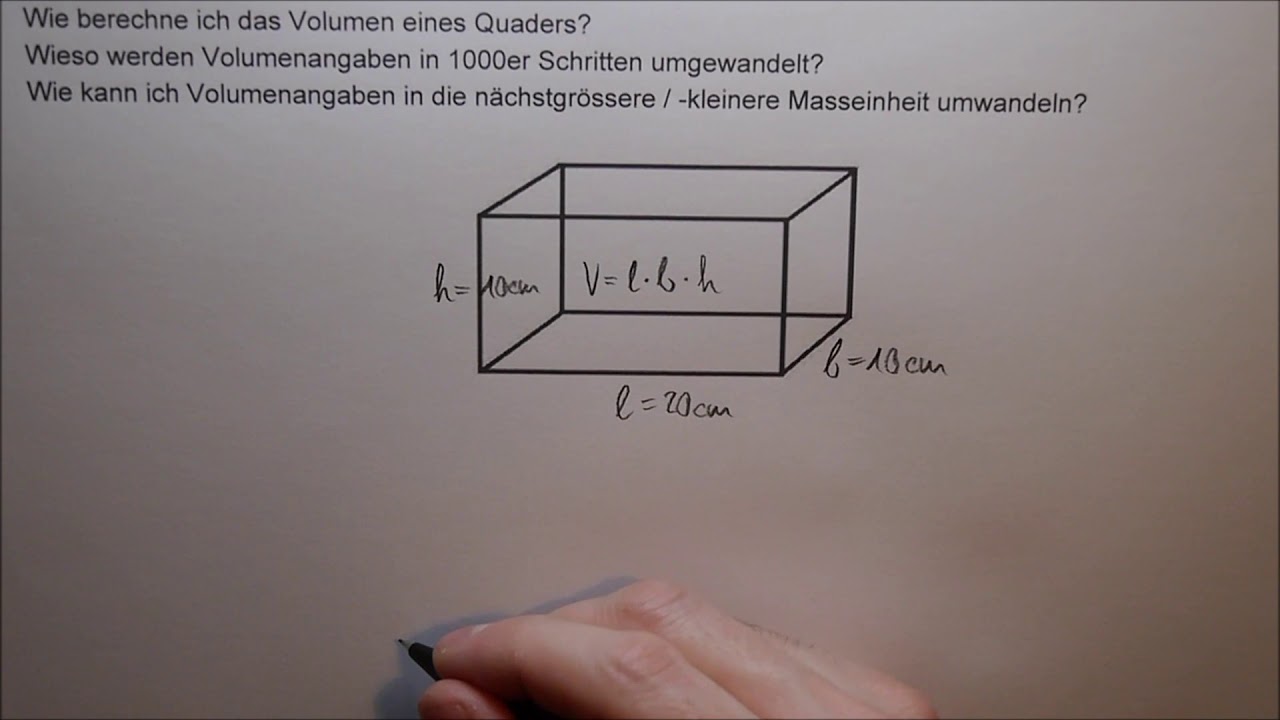 Wie berechne ich das Volumen eines Quaders?
Wieso werden Volumenangaben in 1000er Schritten umgewandelt?
Wie kann ich Volumenangaben in die nächstgrössere / -kleinere Masseinheit umwandeln?
h = 10cm
V = l · b · h
b = 10cm
l = 20cm